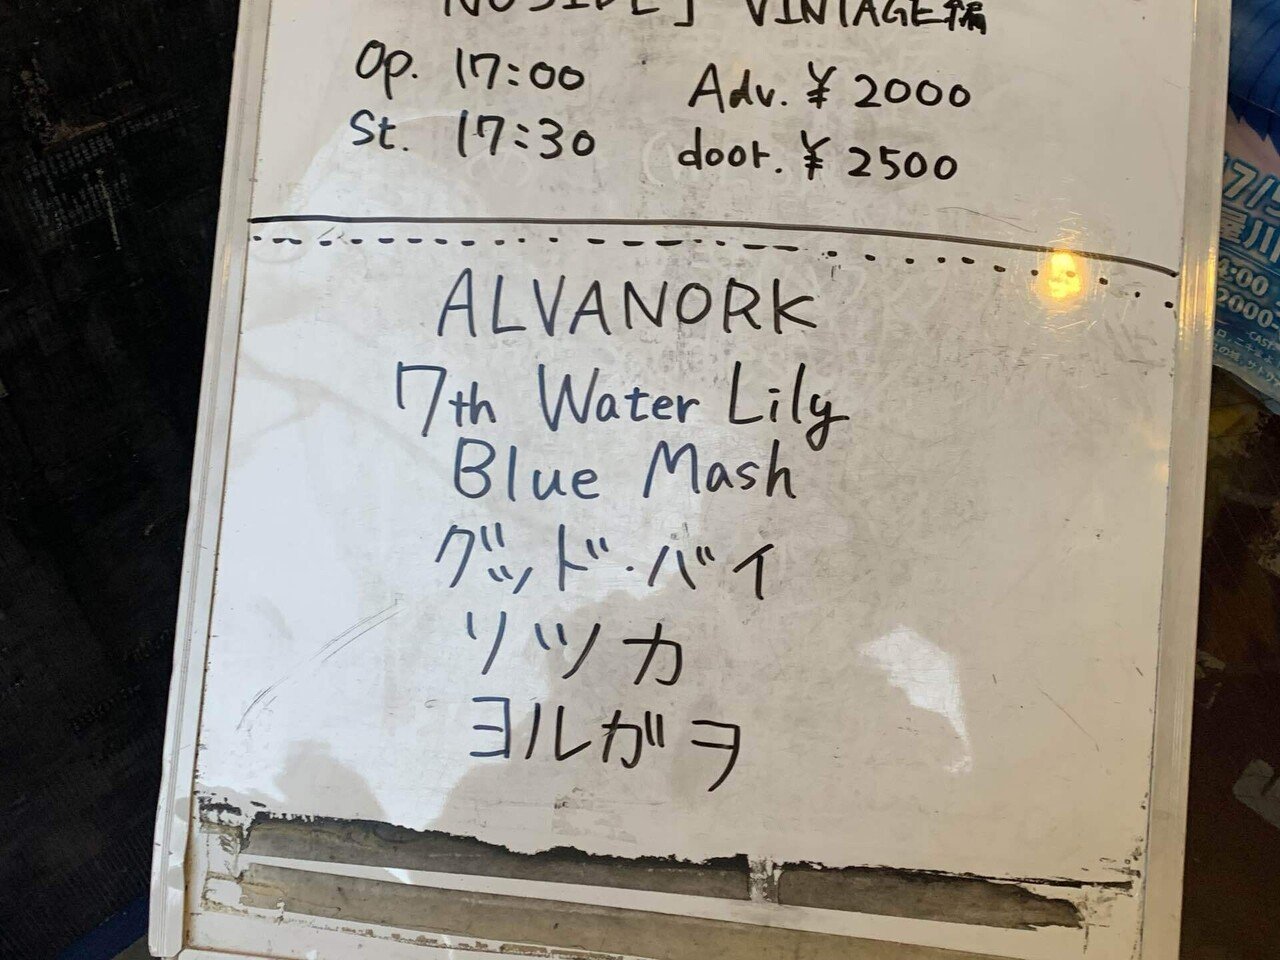 NOSIDE」 VINTAGE編
Op. 17:00 Adv. ¥ 2000
St. 17:30 door. ¥ 2500
ALVANORK
7th Water Lily
Blue Mash
グッド・バイ
リツカ
ヨルガヲ
7/5
屋川
4:00
2000-
CAST